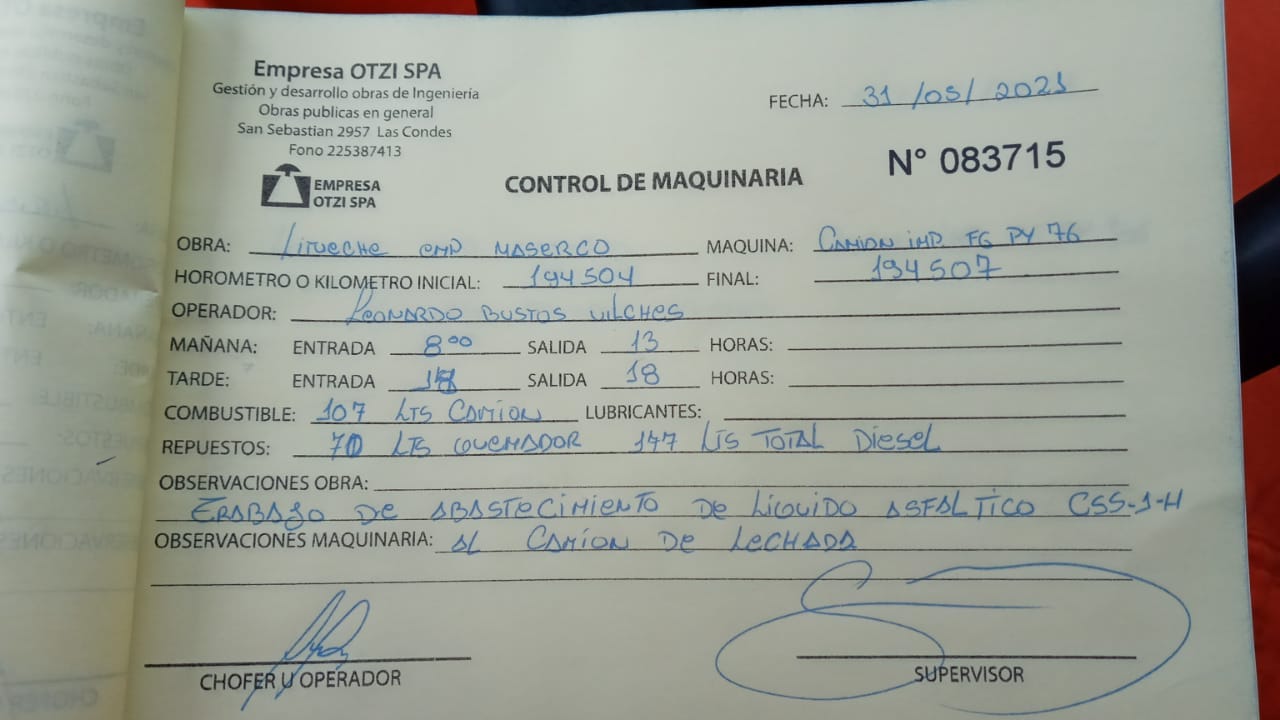 Empresa OTZI SPA
Gestión y desarrollo obras de Ingeniería
Obras publicas en general
San Sebastian 2957 Las Condes
Fono 225387413
EMPRESA
OTZI SPA
FECHA: 31/05/2021
CONTROL DE MAQUINARIA
N° 083715
OBRA: Litueche emp MASERCO MAQUINA: CAMION imp FG PY 76
HOROMETRO O KILOMETRO INICIAL: 194504 FINAL: 194507
OPERADOR: LEONARDO BUSTOS VILCHES
MAÑANA: ENTRADA 8°° SALIDA 13 HORAS:
TARDE: ENTRADA SALIDA 18 HORAS:
COMBUSTIBLE: 107 LTS CAMION LUBRICANTES:
REPUESTOS: 70 LTS QUEMADOR 177 LTS TOTAL Diesel
OBSERVACIONES OBRA:
TRABAJO DE ABASTECIMIENTO DE LIQUIDO ASFALTICO CSS-1-H
OBSERVACIONES MAQUINARIA: AL CAMION DE LECHADA
CHOFER U OPERADOR
SUPERVISOR